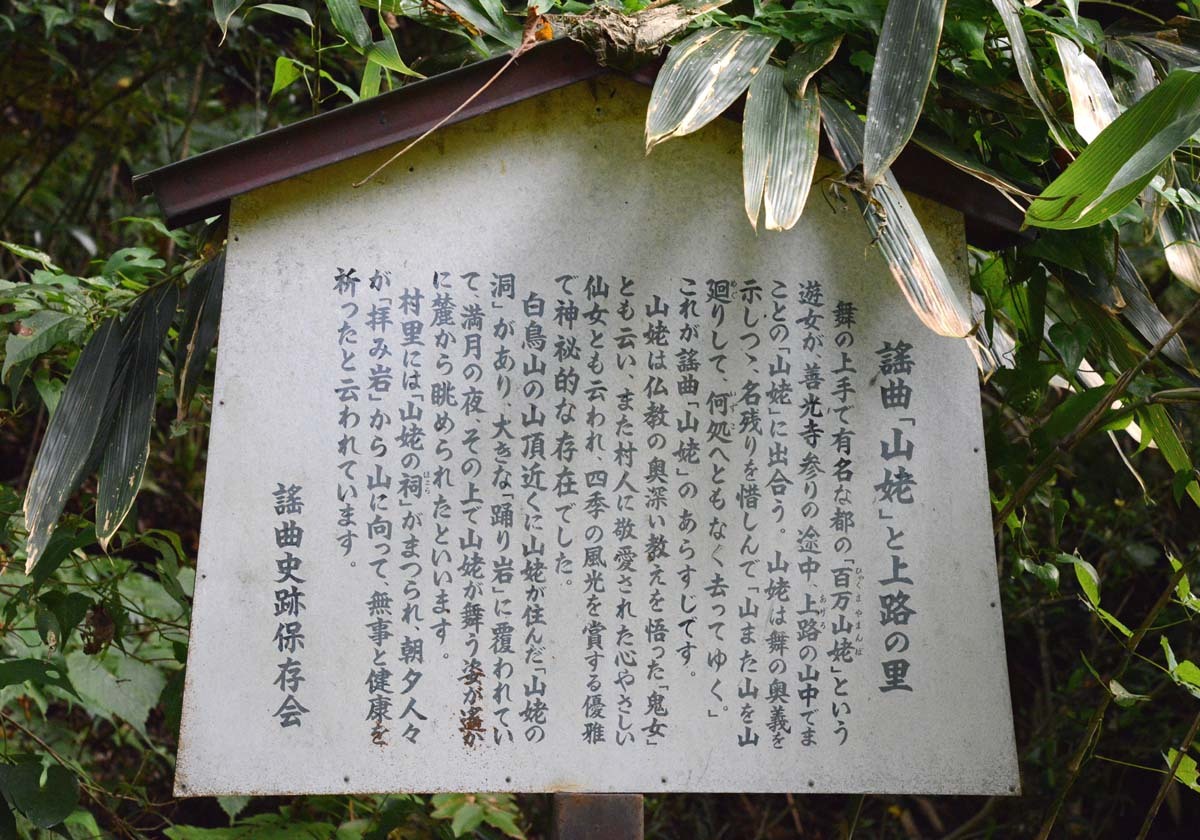 謡曲「山姥」と上路の里
舞の上手で有名な都の「百万山姥」という
遊女が、善光寺参りの途中、上路の山中でま
ことの「山姥」に出合う。山姥は舞の奥義を
示しつゝ、名残りを惜しんで「山また山を山
廻りして、何処へともなく去ってゆく。」
これが謡曲「山姥」のあらすじです。
山姥は仏教の奥深い教えを悟った「鬼女」
とも云い、また村人に敬愛された心やさしい
仙女とも云われ、四季の風光を賞する優雅
で神秘的な存在でした。
白鳥山の山頂近くに山姥が住んだ「山姥の
洞」があり、大きな「踊り岩」に覆われてい
て、満月の夜、その上で山姥が舞う姿が遙か
に麓から眺められたといいます。
村里には「山姥の祠」がまつられ、朝夕人々
が「拝み岩」から山に向って、無事と健康を
祈ったと云われています。
謡曲史跡保存会